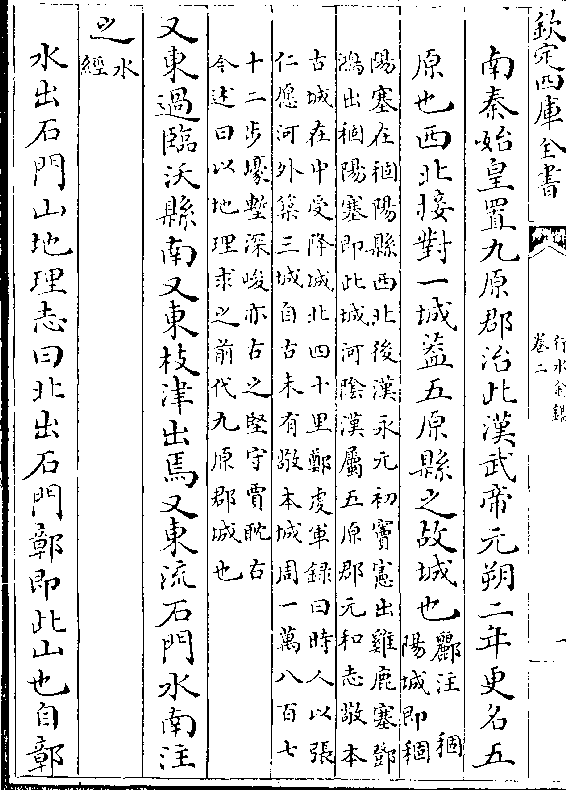 欽定四庫全書
行水金鑑
卷二
南秦始皇置九原郡治此漢武帝元朔二年更名五
原也西北接對一城蓋五原縣之故城也
酈注 稒
陽城即稒
陽塞在稒陽縣西北後漢永元初竇憲出雞鹿塞鄧
鴻出稒陽塞即此城河陰漢屬五原郡元和志敬本
古城在中受降城北四十里鄭虔軍録曰時人以張
仁愿河外築三城自古未有敬本城周一萬八百七
十二步壕塹深峻亦古之堅守賈耽古
今述曰以地理求之前代九原郡城也
又東過臨沃縣南又東枝津出焉又東流石門水南注
之
水
經
水出石門山地理志曰北出石門鄣即此山也自鄣